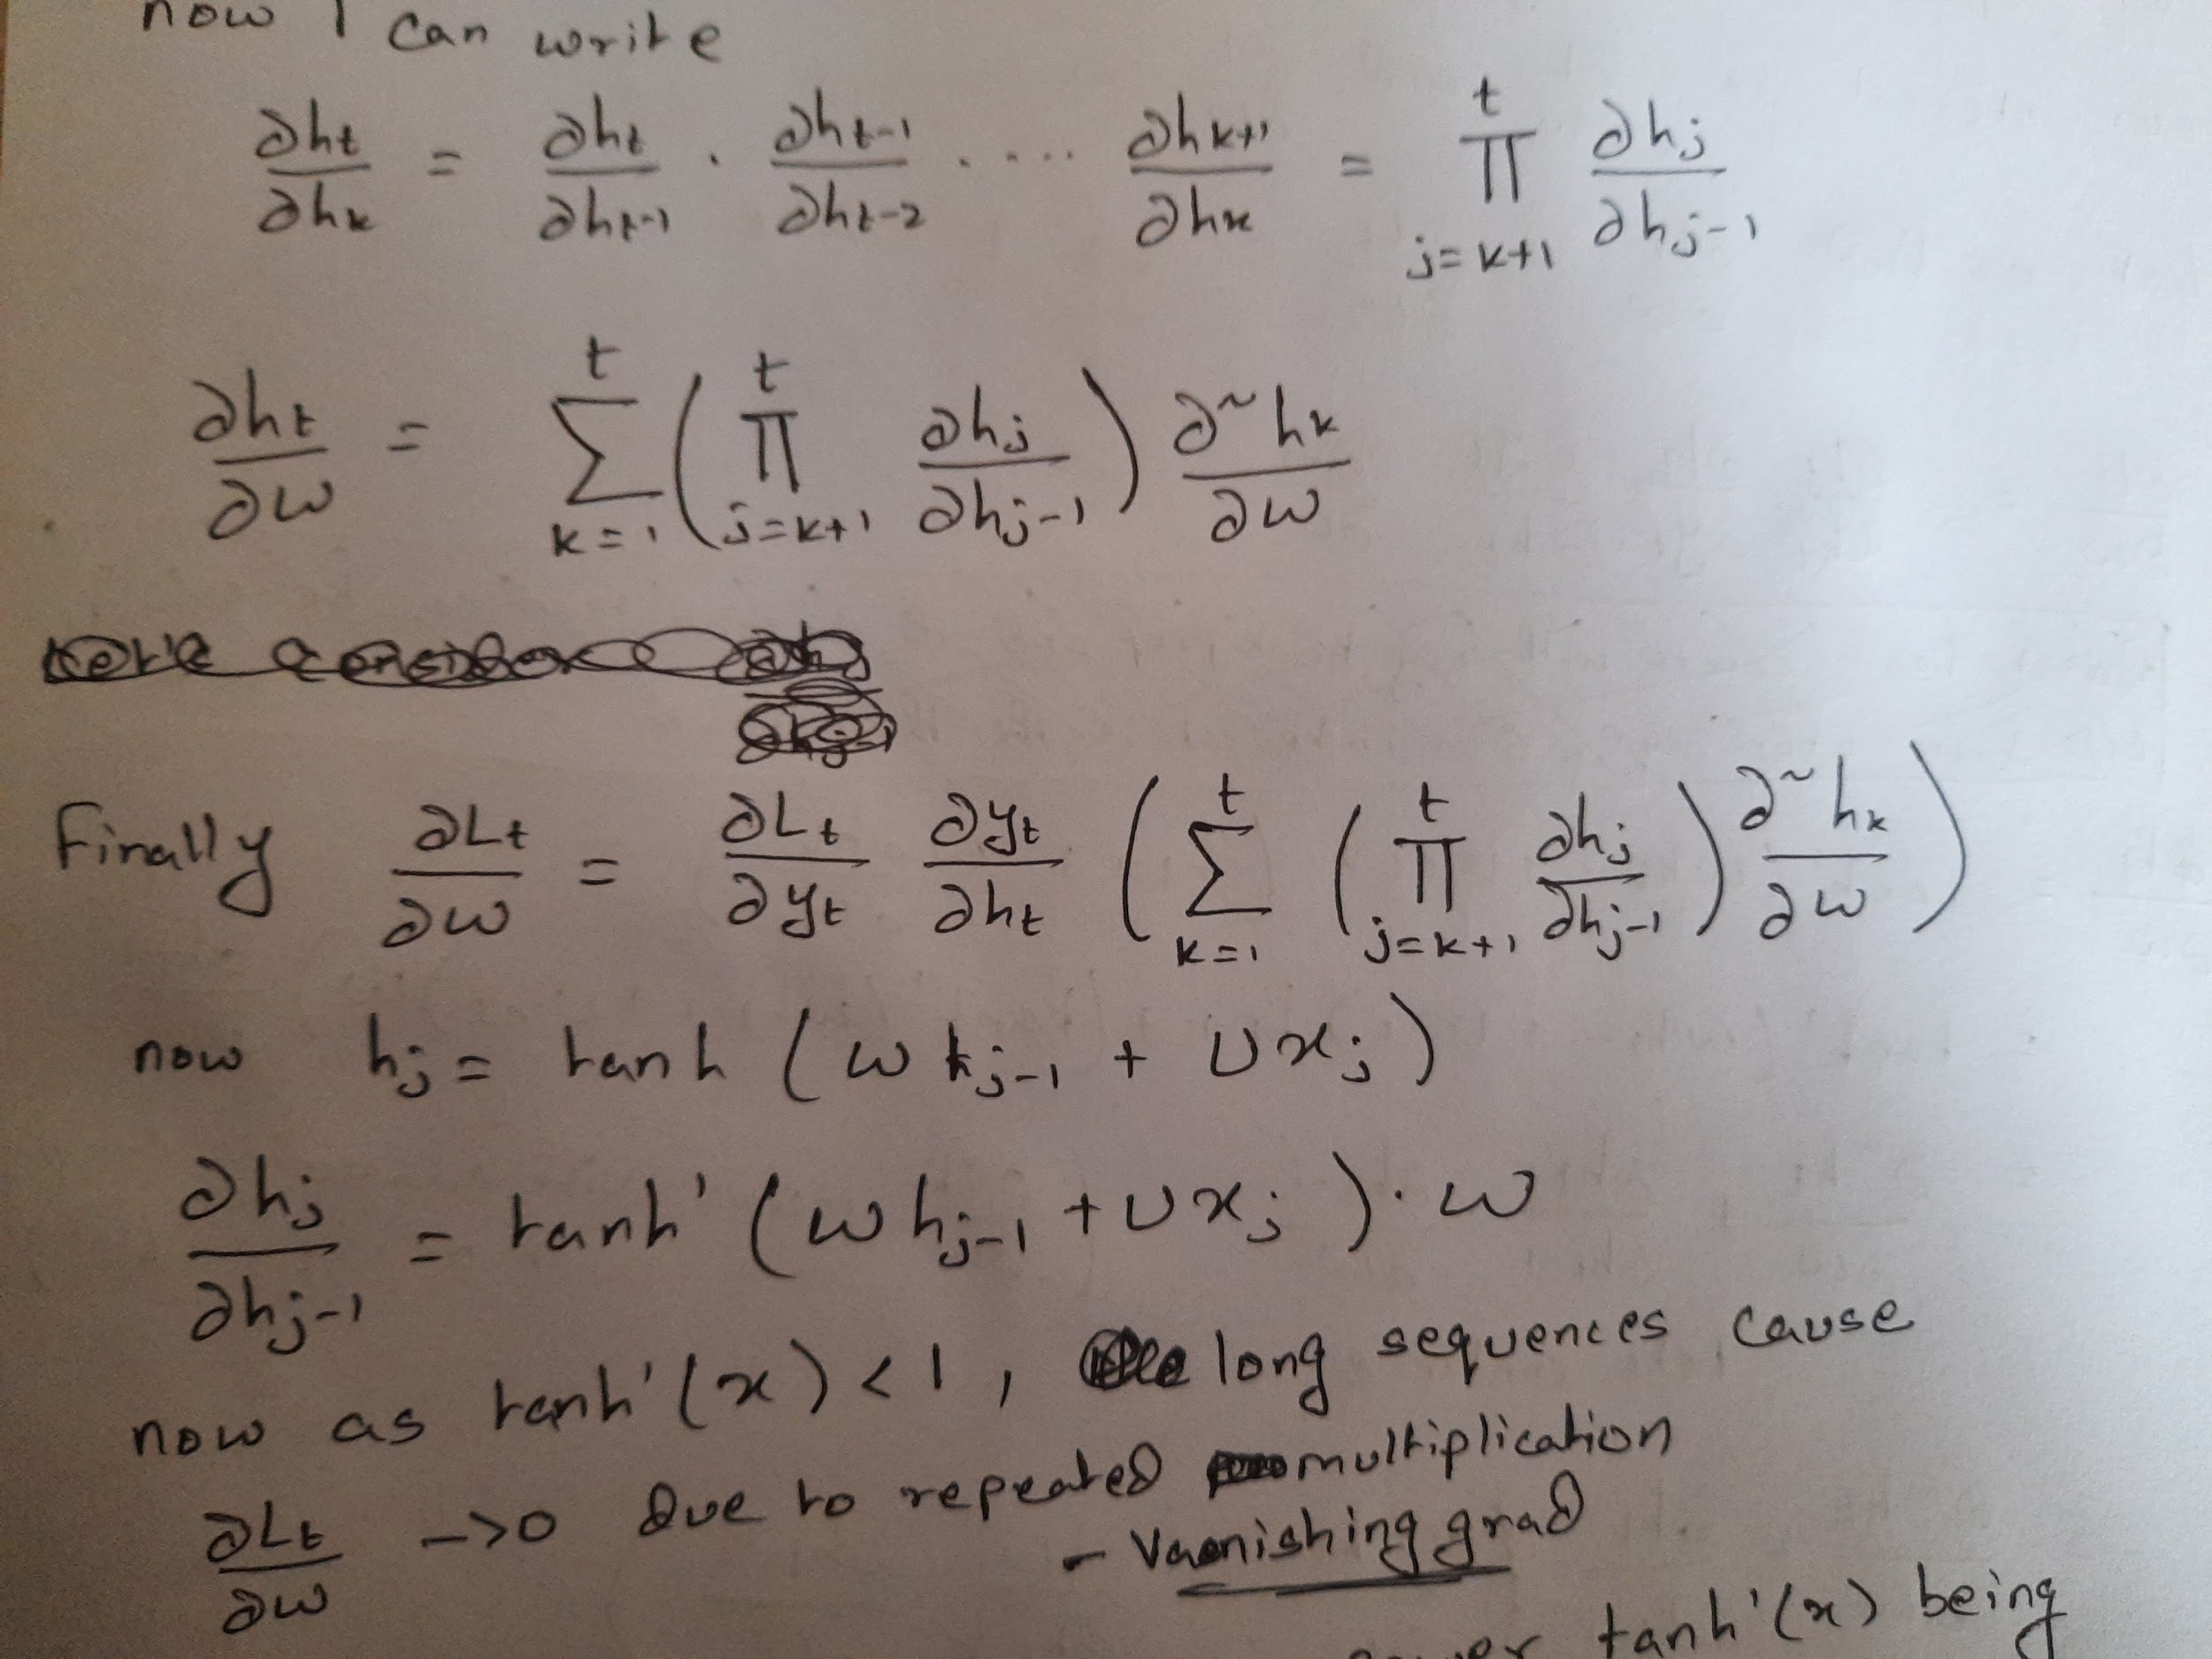 now I can write
∂ht/∂hk = ∂ht/∂ht-1 · ∂ht-1/∂ht-2 ..... ∂hk+1/∂hk = t Π j=k+1 ∂hj/∂hj-1
∂ht/∂w = t Σ k=1 ( t Π j=k+1 ∂hj/∂hj-1 ) ∂~hk/∂w
Finally ∂Lt/∂w = ∂Lt/∂yt ∂yt/∂ht ( t Σ k=1 ( t Π j=k+1 ∂hj/∂hj-1 ) ∂~hk/∂w )
now hj = tanh ( w hj-1 + Uxj )
∂hj/∂hj-1 = tanh' ( w hj-1 + Uxj ) · w
now as tanh'(x) < 1, long sequences cause
∂Lt/∂w -> 0 due to repeated multiplication
- Vanishing grad
tanh'(x) being